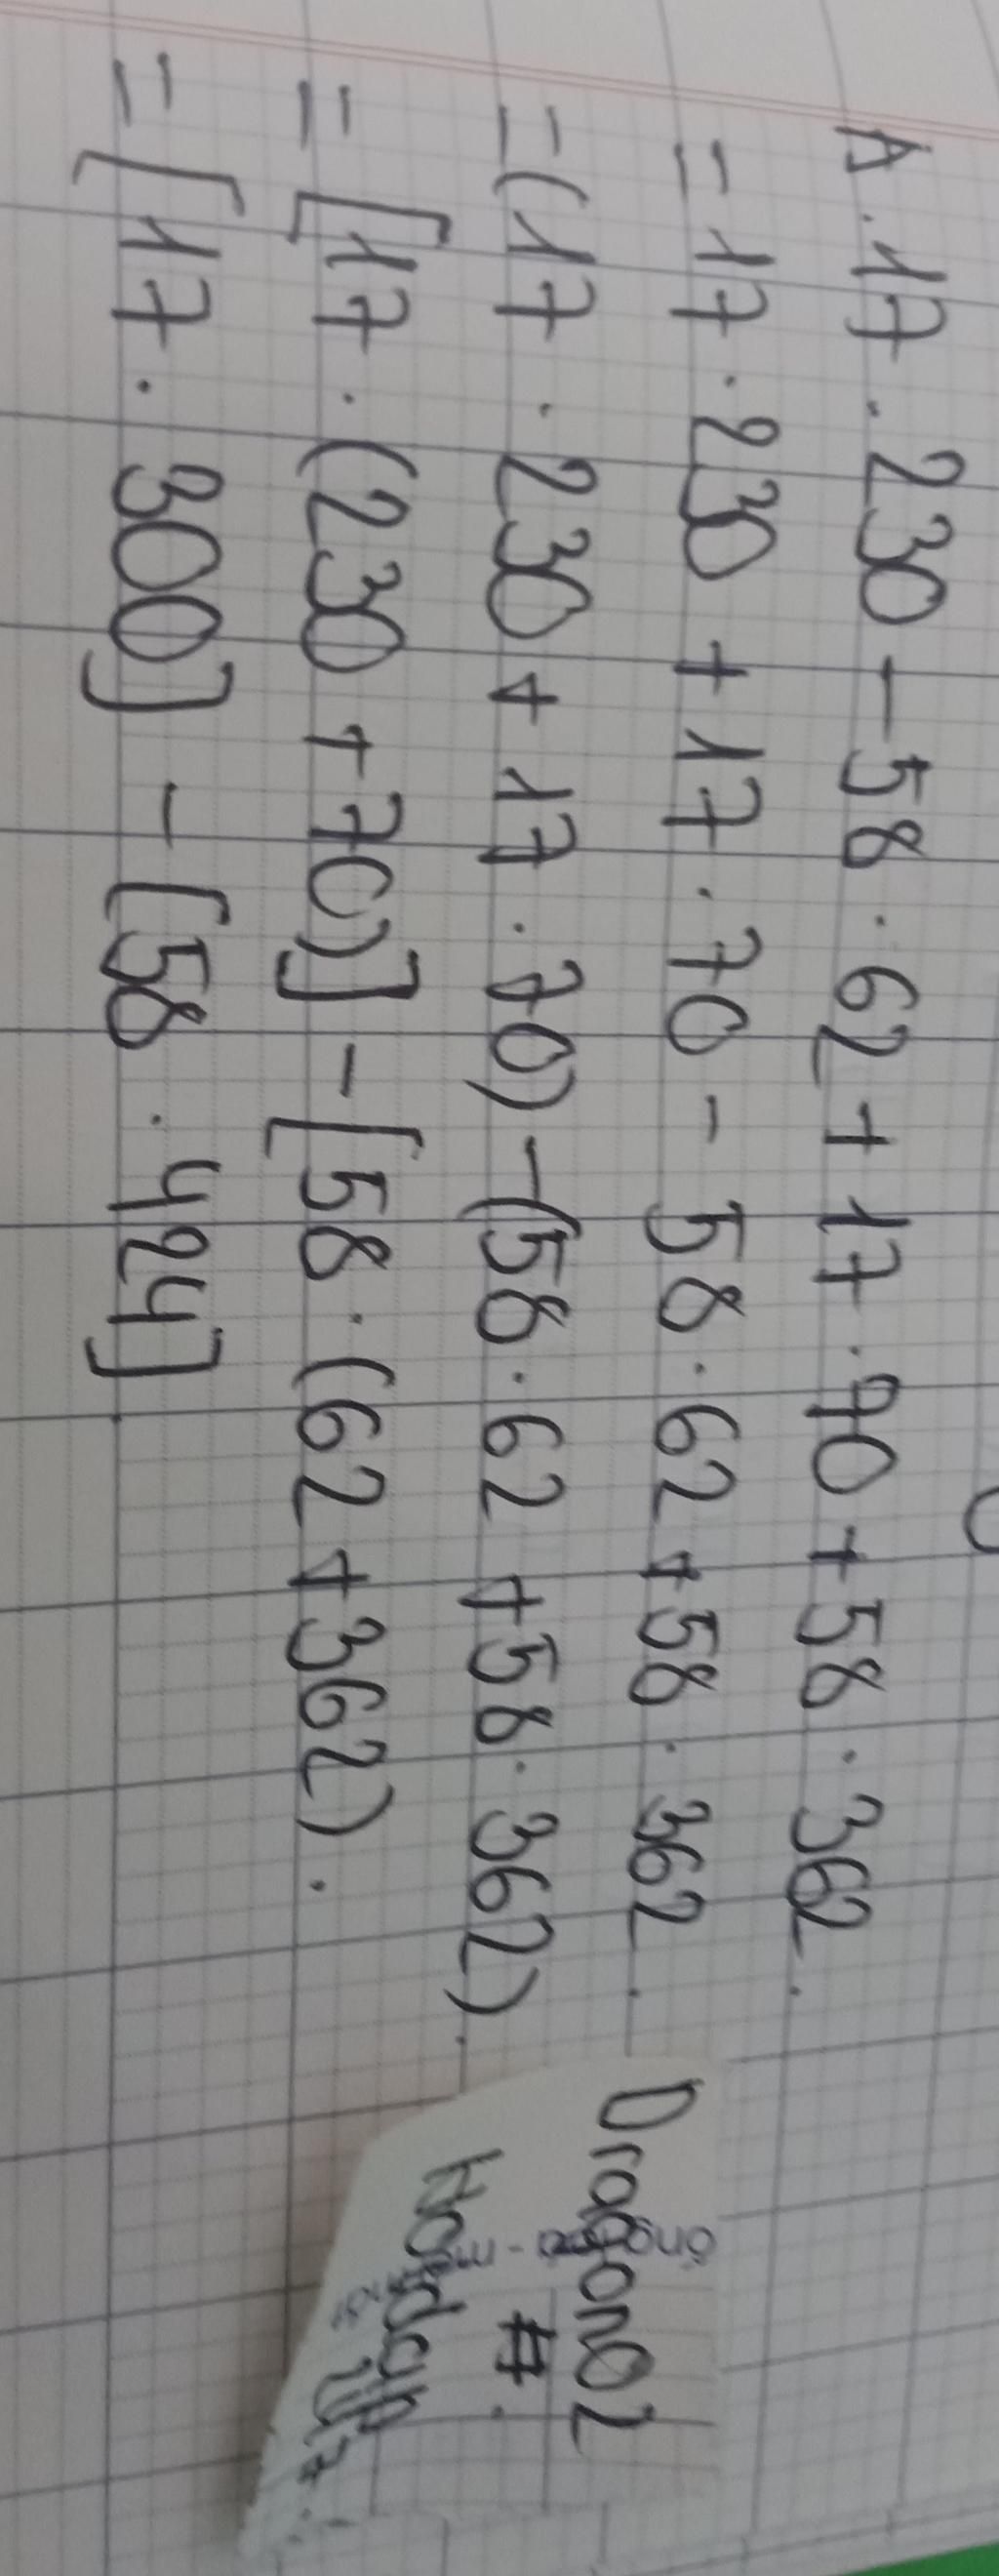 A. 17 . 230 - 58 . 62 + 17 . 70 + 58 . 362.
= 17 . 230 + 17 . 70 - 58 . 62 + 58 . 362.
= (17 . 230 + 17 . 70) - (58 . 62 + 58 . 362).
= [17 . (230 + 70)] - [58 . (62 + 362).
= [17 . 300] - [58 . 424]
Dragon02
#